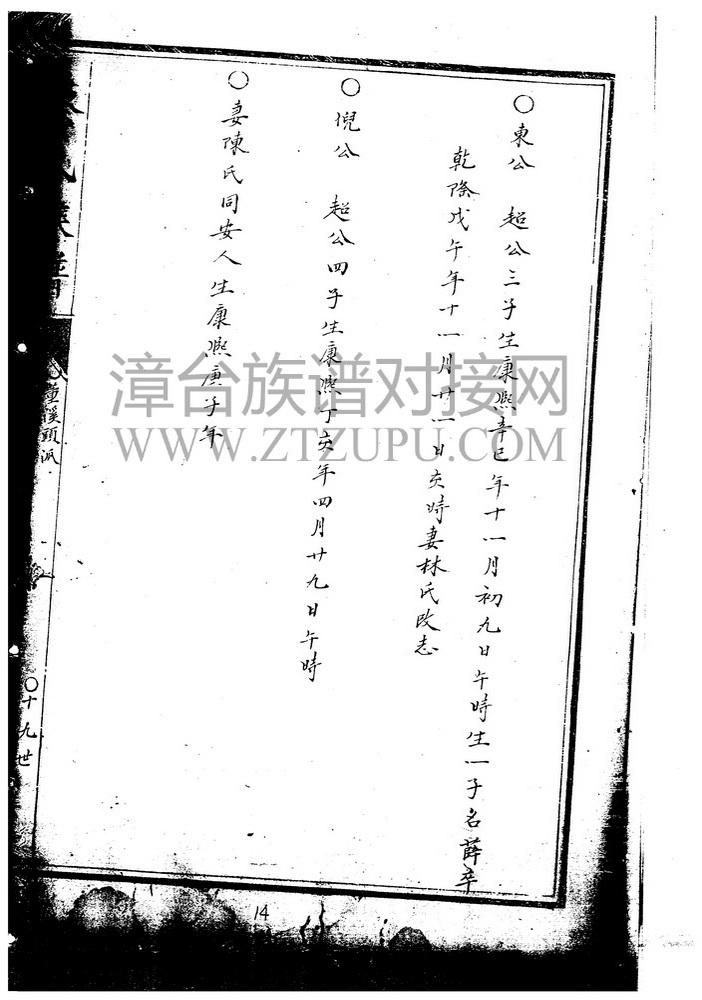 ○東公 超公三子生康熙辛巳年十一月初九日午時生一子名薛卒
乾隆戊午年十一月廿一日亥時妻林氏改志
○倪公 超公四子生康熙丁亥年四月廿九日午時
○妻陳氏同安人生康熙庚子年
頭派
○十九世
14
漳台族谱对接网
WWW.ZTZUPU.COM